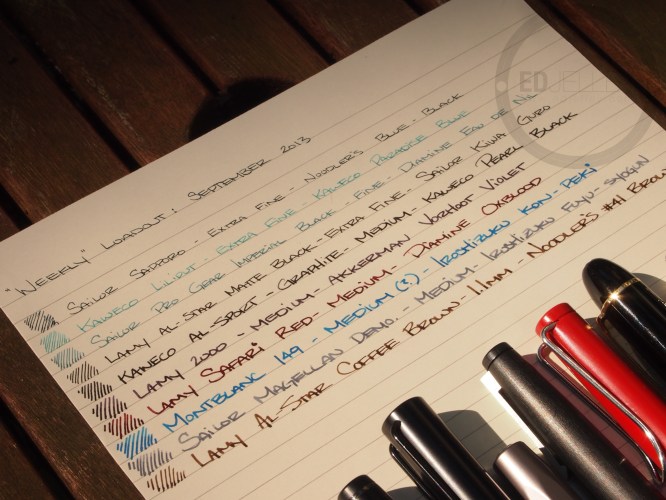 "Weekly" Loadout: September 2013
Sailor Sapporo - Extra Fine - Noodler's Blue-Black
Kaweco Liliput - Extra Fine - Kaweco Paradise Blue
Sailor Pro Gear Imperial Black - Fine - Diamine Eau de Nil
Lamy Al-Star Matte Black - Extra Fine - Sailor Kiwa Guro
Kaweco Al-Sport - Graphite - Medium - Kaweco Pearl Black
Lamy 2000 - Medium - Akkerman Voorhoot Violet
Lamy Safari Red - Medium - Diamine Oxblood
Montblanc 149 - Medium (?) - Iroshizuku Kon-Peki
Sailor Magellan Demo. - Medium - Iroshizuku Fuyu-Syogun
Lamy Al-Star Coffee Brown - 1.1mm - Noodler's #41 Brown
ED